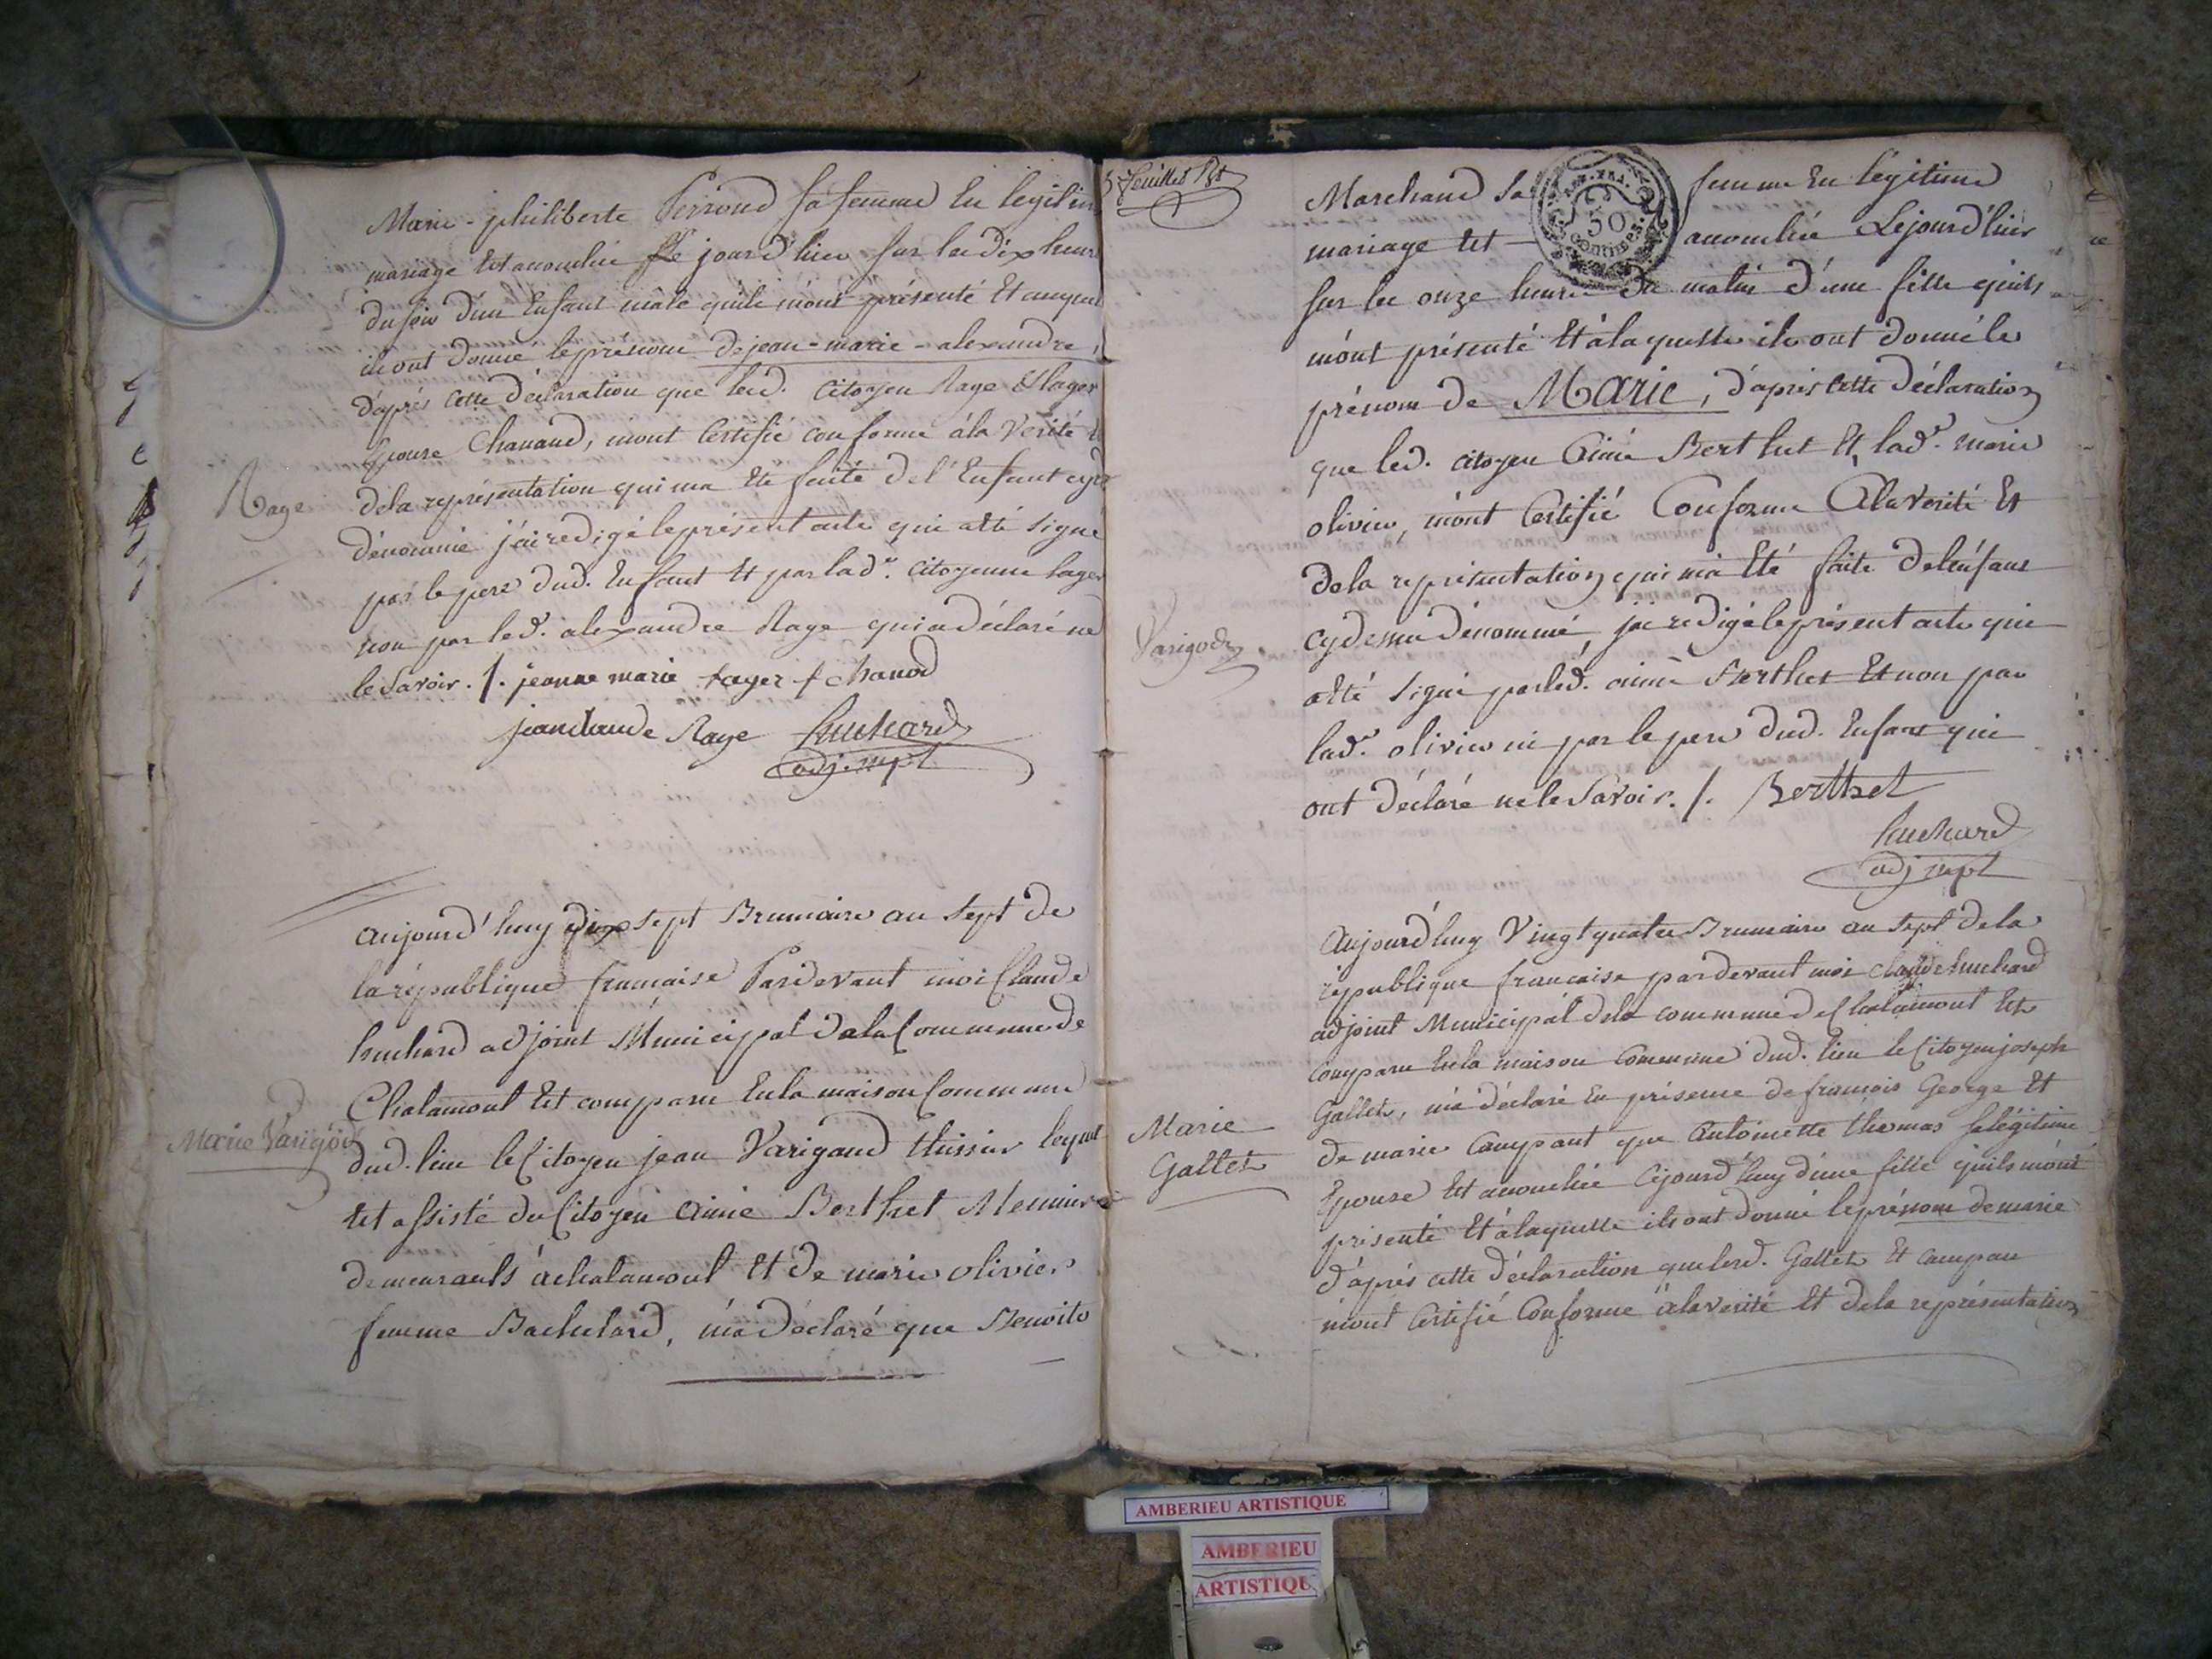 Marie-philiberte Perroud sa femme En legitim
mariage Est accouchée le jour d'hier sur les dix heure
du soir d'un Enfant mâle qu'ils m'ont présenté Et auquel
ils ont donné le prénom de jean-marie-alexandre,
d'après Cette déclaration que lesd. Citoyen Raye & lager
Epouse Chanaud, m'ont Certifié conforme à la Vérité &
Raye
de la représentation qui m'a Eté faite de l'Enfant cyd
dénommé j'ai redigé le présent acte qui a été signé
par le pere dud. Enfant Et par lad.e Citoyenne lager
non par led. alexandre Raye qui a déclaré ne
le Savoir. /. jeanne marie lager f chanod
jean claude Raye huchard
adj. mpl
Aujourd'huy dix sept Brumaire an sept de
la république française Pardevant moi Claude
huchard adjoint Municipal de la Commune de
Chalamont Est comparu En la maison Commune
Marie Varigod
dud. lieu le Citoyen jean Varigaud thissier lequel
Est assisté du Citoyen aimé Berthet Meunier
demeurants à chalamont Et de marie olivier
femme Bachelard, m'a déclaré que Benoite
5 feuillet Rt
Marchand sa femme En légitime
30
Centimes
mariage Est accouchée Le jour d'hier
sur les onze heure du matin d'une fille qu'ils
m'ont présenté Et à laquelle ils ont donné le
prénom de Marie, d'après Cette déclaration
que led. Citoyen Aimé Berthet Et lad.e marie
olivier, m'ont Certifié Conforme A la Vérité Et
de la représentation qui m'a Eté faite de l'enfant
Varigod
cydessu dénommé, j'ai redigé le présent acte qui
a été signé par led. aimé Berthet Et non par
lad.e olivier ni par le pere dud. Enfant qui
ont déclaré ne le Savoir. /. Berthet
huchard
adj mpl
Aujourd'huy Vingt quatre Brumaire an sept de la
république française pardevant moi Claude huchard
adjoint Municipal de la commune de Chalamont Est
comparu En la maison Commune dud. lieu le Citoyen joseph
Gallet, m'a déclaré En présence de françois George Et
Marie
Gallet
de marie Campant que Antoinette thomas sa légitime
Epouse Est accouchée Cejourd'huy d'une fille qu'ils m'ont
présenté Et à laquelle ils ont donné le prénom de marie
d'après cette déclaration que lesd. Gallet Et Campan
m'ont Certifié Conforme à la vérité Et de la représentation
AMBERIEU ARTISTIQUE
AMBERIEU
ARTISTIQU